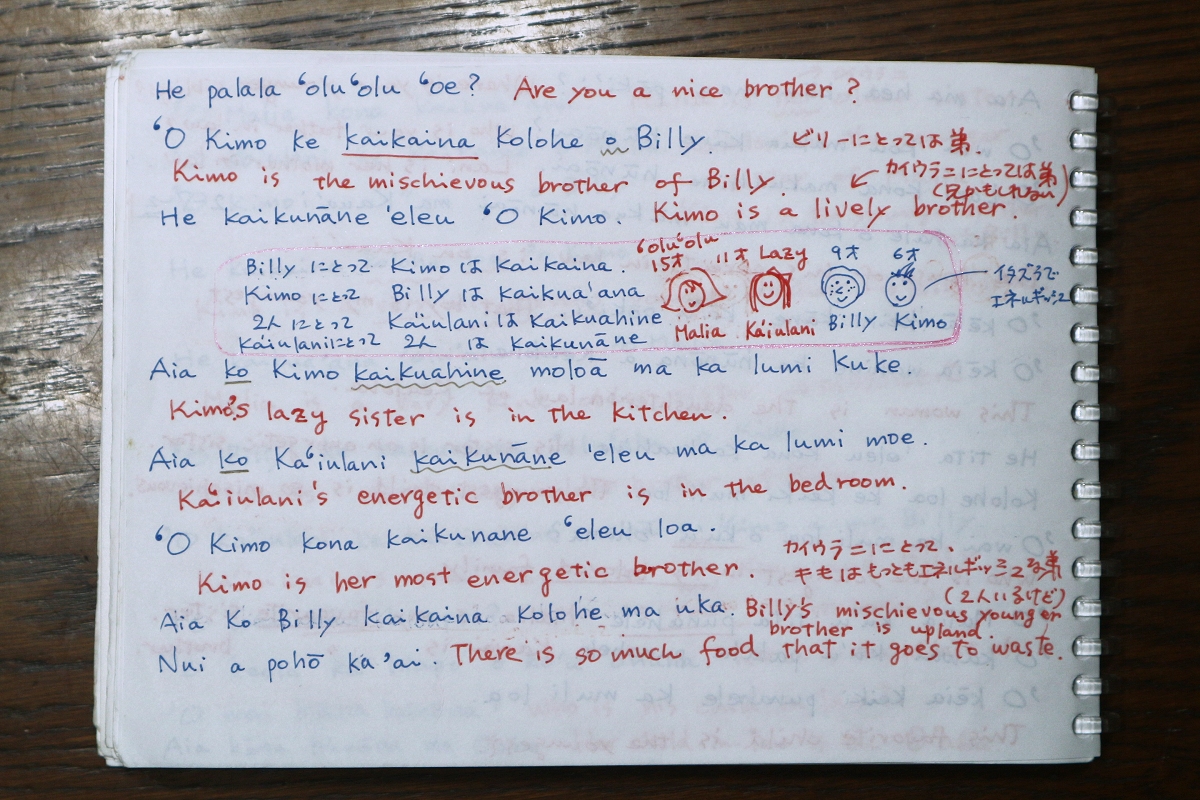 He palala ʻoluʻolu ʻoe? Are you a nice brother?
ʻO Kimo ke kaikaina kolohe o Billy. ビリーにとっては弟.
Kimo is the mischievous brother of Billy カイウラニにとっては弟
(兄かもしれない)
He kaikunāne 'eleu ʻO Kimo. Kimo is a lively brother.
ʻoluʻolu
15才 11才 Lazy 9才 6才
Billy にとって Kimo は Kaikaina.
Kimo にとって Billy は Kaikua'ana
イタズラで
エネルギッシュ
2人 にとって Ka'iulani は Kaikuahine
Malia Ka'iulani Billy Kimo
Ka'iulaniにとって 2人 は Kaikunāne
Aia ko Kimo kaikuahine moloā ma ka lumi Kuke.
Kimo's lazy sister is in the kitchen.
Aia ko Kaʻiulani kaikunāne 'eleu ma ka lumi moe.
Kaʻiulani's energetic brother is in the bedroom.
ʻO Kimo kona kaikunane ʻeleu loa.
カイウラニにとって、
Kimo is her most energetic brother. キモはもっともエネルギッシュな弟
(2人いるけど)
Aia Ko Billy kaikaina Kolohe ma uka. Billy's mischievous younger
brother is upland.
Nui a pohō ka 'ai. There is so much food that it goes to waste.